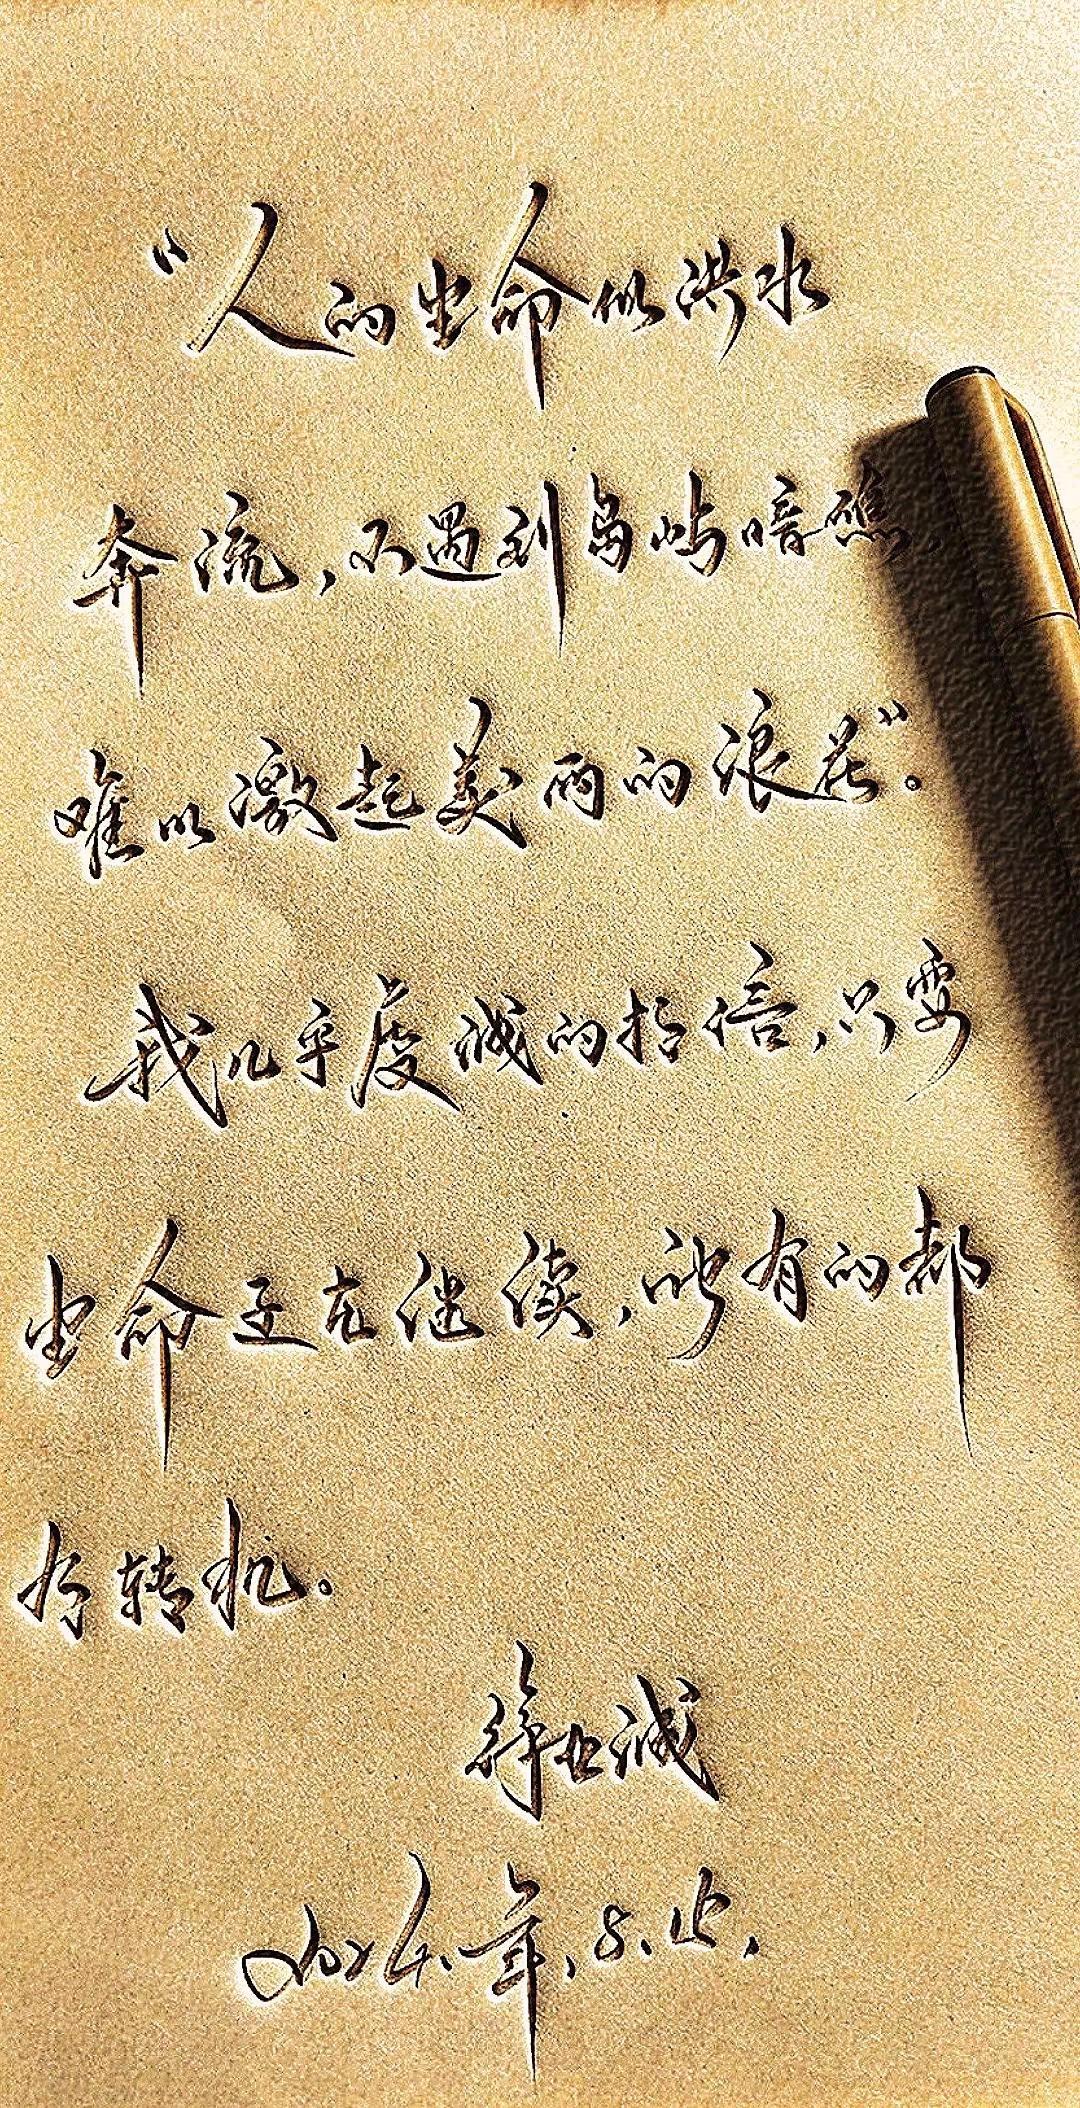 “人的生命似洪水
奔流，不遇到岛屿暗礁，
难以激起美丽的浪花”。
我几乎虔诚的相信，只要
生命正在继续，所有的都
有转机。
徐世诚
年、5、